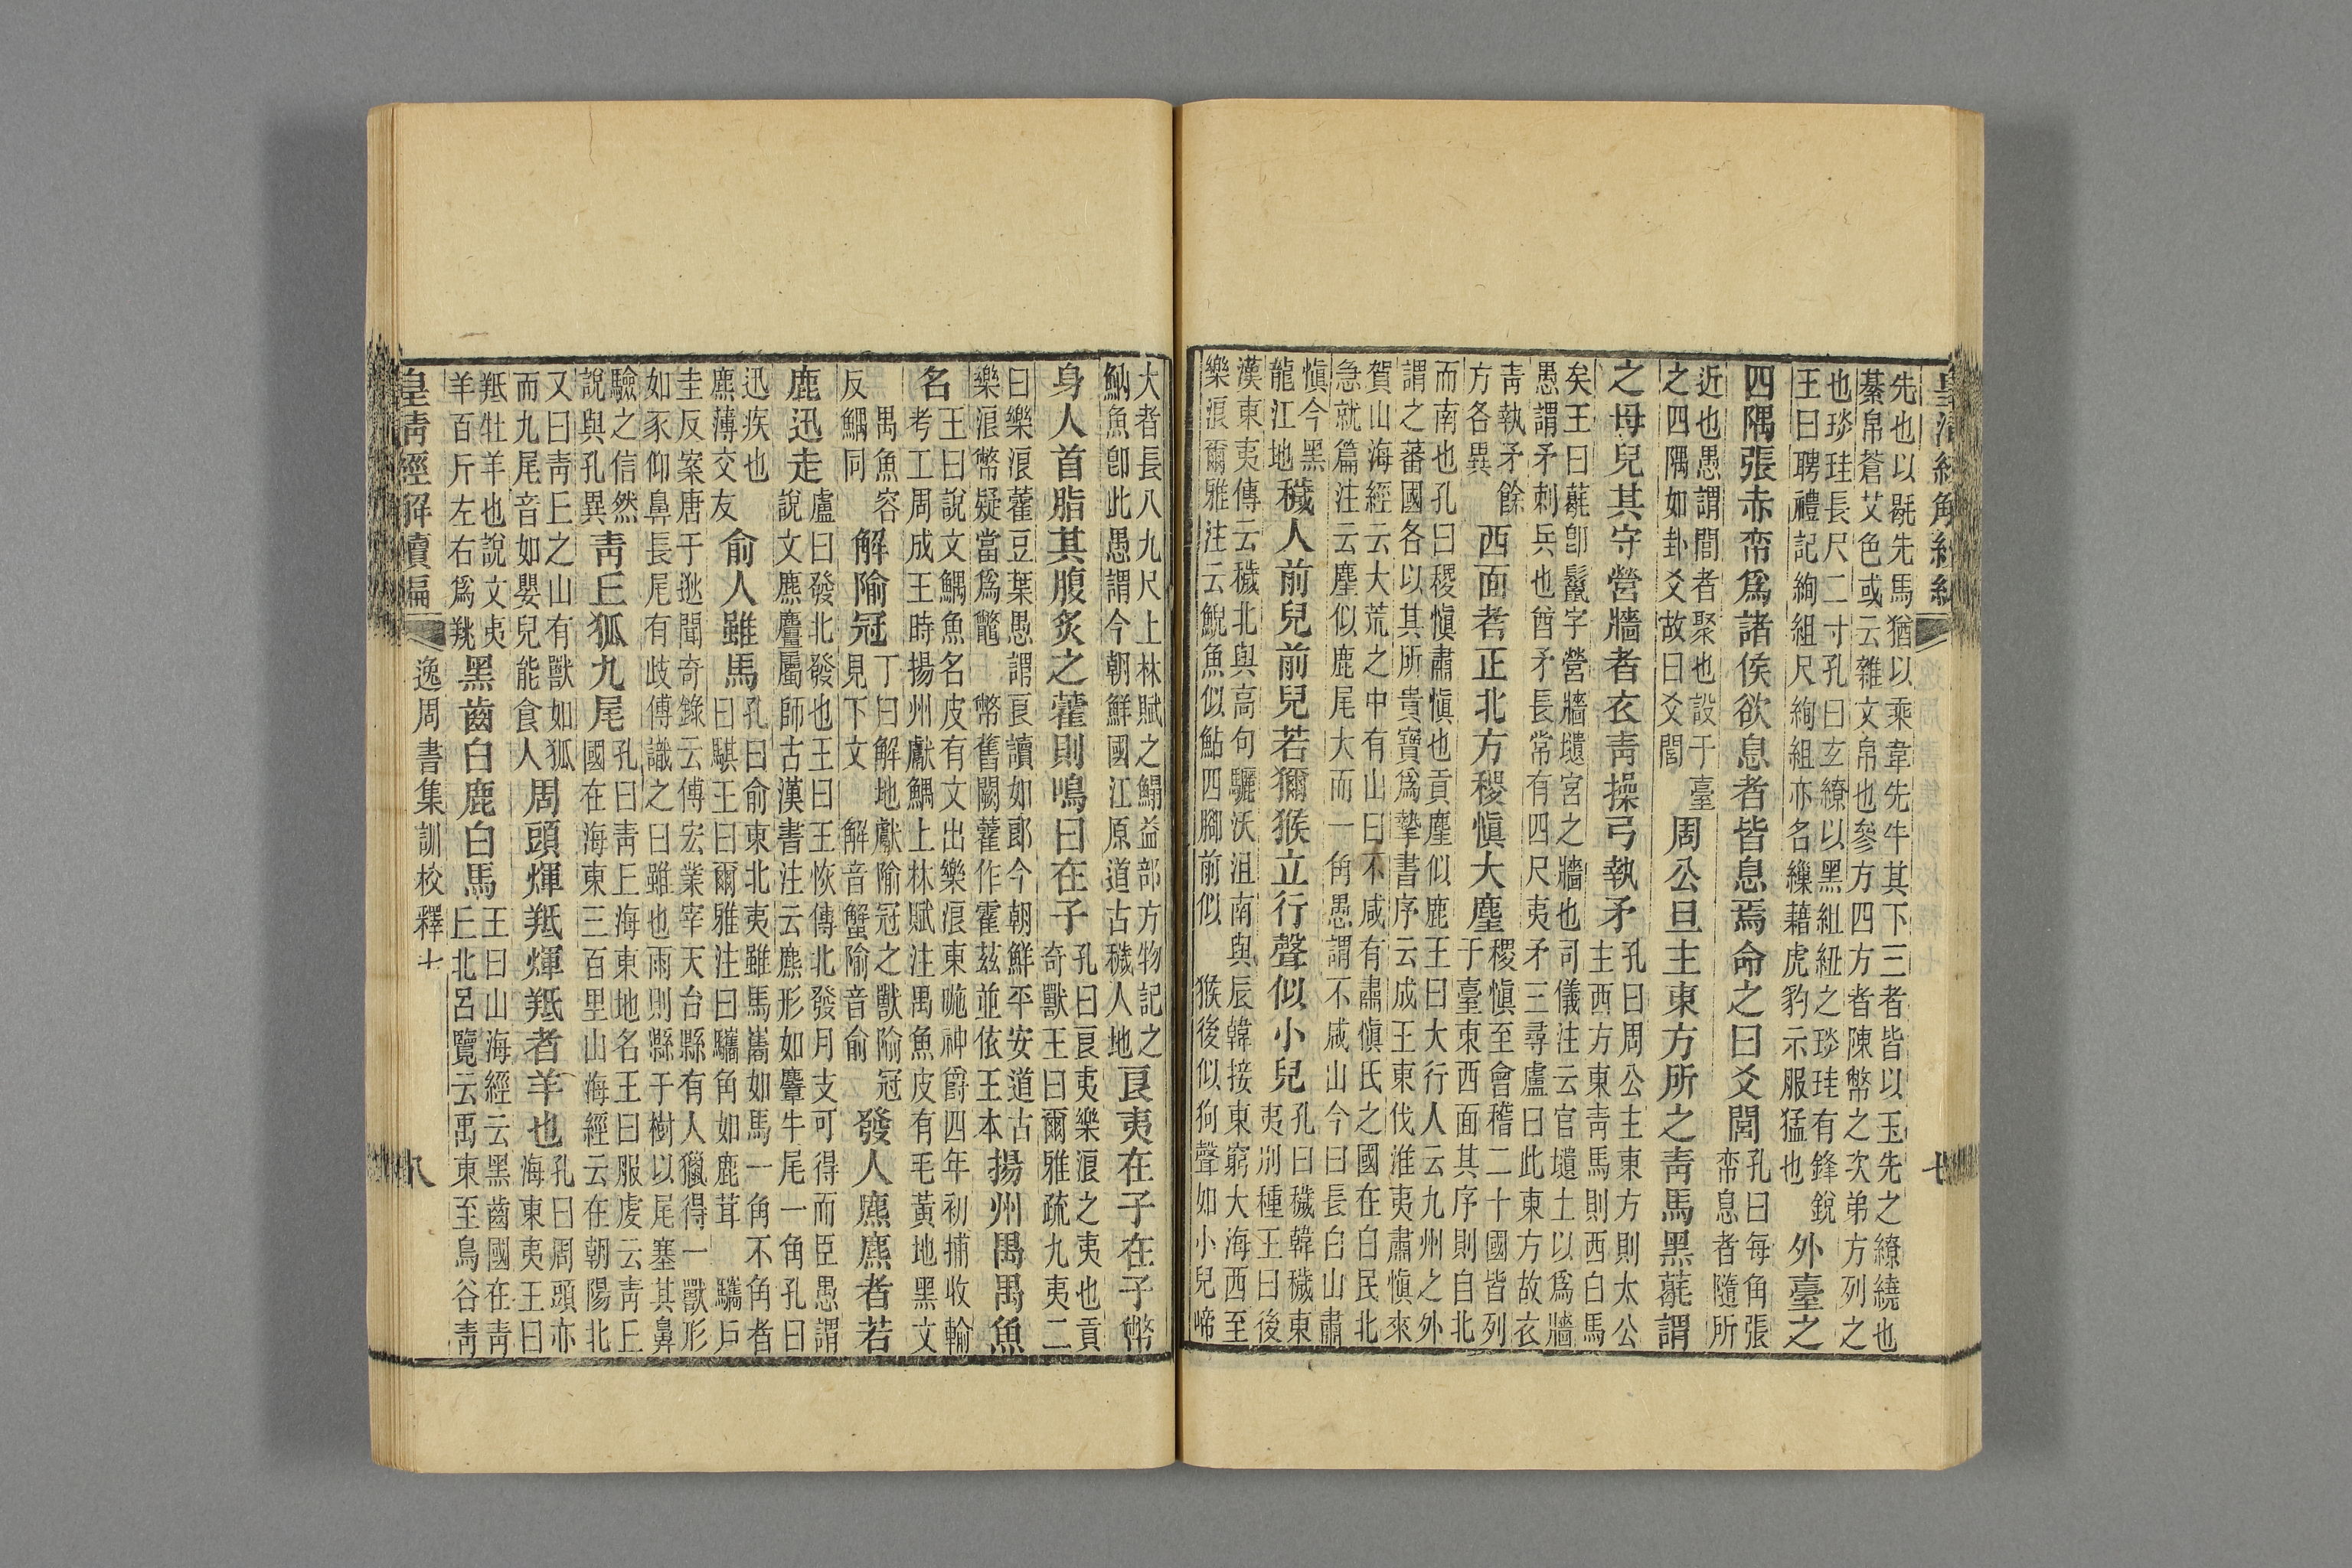 皇清經解續編
七
先也以毾先馬猶以乘韋先牛其下三者皆以玉先之繚繞也
綦帛蒼艾色或云雜文帛也參方四方者陳幣之次弟方列之
也琰珪長尺二寸孔曰玄繚以黑組紐之琰珪有鋒銳
王曰聘禮記絢組尺絢組亦名繅藉虎豹示服猛也
外臺之
四隅張赤帟爲諸侯欲息者皆息焉命之曰爻閭
孔曰每角張
帟息者隨所
近也愚謂閭者聚也設于臺
之四隅如卦爻故曰爻閭
周公旦主東方所之靑馬黑𩭤謂
之母兒其守營牆者衣靑操弓執矛
孔曰周公主東方則太公
主西方東靑馬則西白馬
矣王曰𩭤卽鬣字營牆壝宮之牆也司儀注云官壝土以爲牆
愚謂矛刺兵也酋矛長常有四尺夷矛三尋盧曰此東方故衣
靑執矛餘
方各異
西面者正北方稷愼大麈
稷愼至會稽二十國皆列
于臺東西面其序則自北
而南也孔曰稷愼肅愼也貢麈似鹿王曰大行人云九州之外
謂之蕃國各以其所貴寶爲摯書序云成王東伐淮夷肅愼來
賀山海經云大荒之中有山曰不咸有肅愼氏之國在白民北
急就篇注云麈似鹿尾大而一角愚謂不咸山今曰長白山肅
愼今黑
龍江地
穢人前兒前兒若獼猴立行聲似小兒
孔曰穢韓穢東
夷別種王曰後
漢東夷傳云穢北與高句驪沃沮南與辰韓接東窮大海西至
樂浪爾雅注云鯢魚似鮎四腳前似猴後似狗聲如小兒啼
大者長八九尺上林賦之鰨益部方物記之
魶魚卽此愚謂今朝鮮國江原道古穢人地
良夷在子在子幣
身人首脂其腹炙之藿則鳴曰在子
孔曰良夷樂浪之夷也貢
奇獸王曰爾雅疏九夷二
曰樂浪藿豆葉愚謂良讀如郎今朝鮮平安道古
樂浪幣疑當爲鼈幣舊闕藿作霍茲並依王本
揚州禺禺魚
名
王曰說文鰅魚名皮有文出樂浪東暆神爵四年初捕收輸
考工周成王時揚州獻鰅上林賦注禺魚皮有毛黃地黑文
禺魚容
反鰅同
解隃冠
丁曰解地獻隃冠之獸隃冠
見下文解音蟹隃音俞
發人麃麃者若
鹿迅走
盧曰發北發也王曰王恢傳北發月支可得而臣愚謂
說文麃麠屬師古漢書注云麃形如麞牛尾一角孔曰
迅疾也
麃薄交友
俞人雖馬
孔曰俞東北夷雖馬巂如馬一角不角者
曰騏王曰爾雅注曰驨角如鹿茸驨戶
圭反案唐于逖聞奇錄云傅宏業宰天台縣有人獵得一獸形
如豕仰鼻長尾有歧傅識之曰雖也雨則縣于樹以尾塞其鼻
驗之信然
說與孔異
靑丘狐九尾
孔曰靑丘海東地名王曰服虔云靑丘
國在海東三百里山海經云在朝陽北
又曰靑丘之山有獸如狐
而九尾音如嬰兒能食人
周頭煇羝煇羝者羊也
孔曰周頭亦
海東夷王曰
羝牡羊也說文夷
羊百斤左右爲羠
黑齒白鹿白馬
王曰山海經云黑齒國在靑
丘北呂覽云禹東至鳥谷靑
皇清經解續編
逸周書集訓校釋七
八